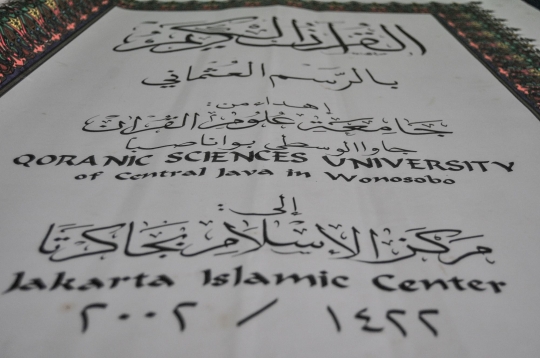 القرآن الكريم
بالرسم العثماني
إهداء من:
جامعة علوم القرآن
جاوا الوسطى بواناصبا
QORANIC SCIENCES UNIVERSITY
of Central Java in Wonosobo
إلى:
مركز الإسلام بجاكرتا
Jakarta Islamic Center
١٤٢٢ / ٢٠٠٢